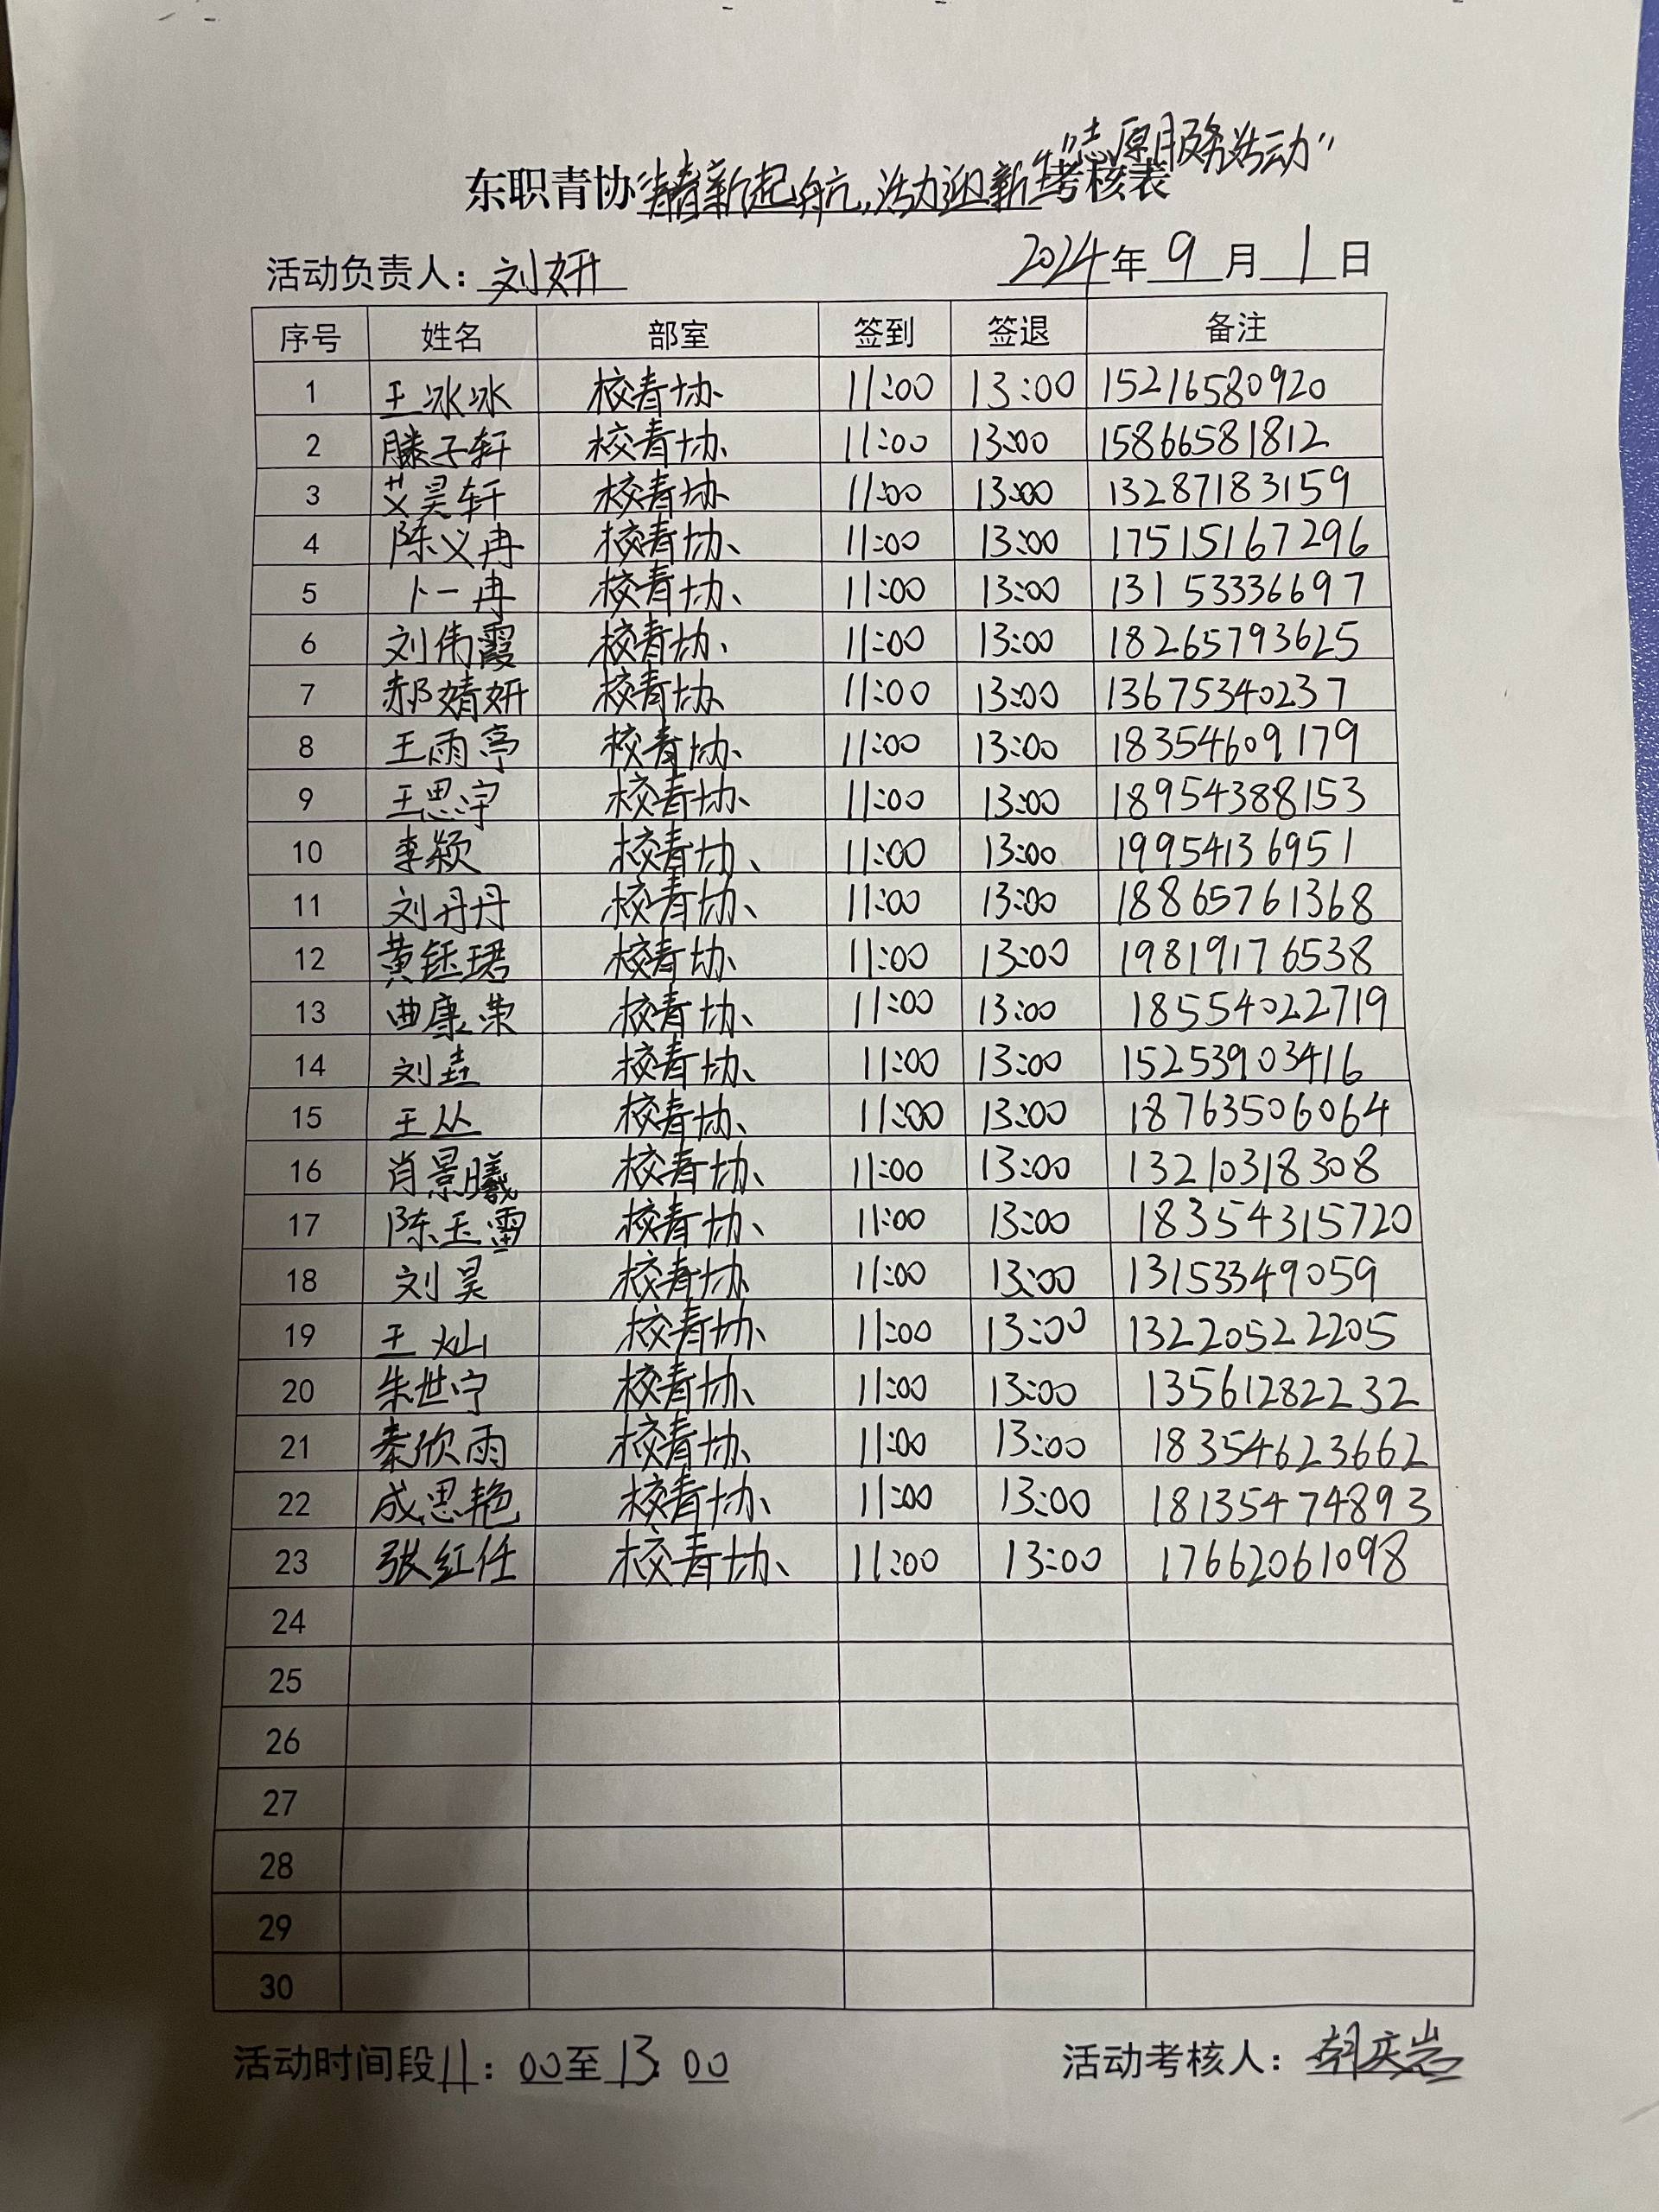 "志愿服务活动"
东职青协"青春新起航,活力迎新"考核表
活动负责人: 刘妍 2024年9月1日
序号 姓名 部室 签到 签退 备注
1 王冰冰 校青协 11:00 13:00 15216580920
2 滕子轩 校青协 11:00 13:00 15866581812
3 艾昊轩 校青协 11:00 13:00 13287183159
4 陈义冉 校青协 11:00 13:00 17515167296
5 卜一冉 校青协 11:00 13:00 13153336697
6 刘伟霞 校青协 11:00 13:00 18265793625
7 郝婧妍 校青协 11:00 13:00 13675340237
8 王雨亭 校青协 11:00 13:00 18354609179
9 王思宇 校青协 11:00 13:00 18954388153
10 李颖 校青协 11:00 13:00 19954136951
11 刘丹丹 校青协 11:00 13:00 18865761368
12 黄钰珺 校青协 11:00 13:00 19819176538
13 曲康荣 校青协 11:00 13:00 18554022719
14 刘垚 校青协 11:00 13:00 15253903416
15 王丛 校青协 11:00 13:00 18763506064
16 肖景曦 校青协 11:00 13:00 13210318308
17 陈玉雷 校青协 11:00 13:00 18354315720
18 刘昊 校青协 11:00 13:00 13153349059
19 王灿 校青协 11:00 13:00 13220522205
20 朱世宁 校青协 11:00 13:00 13561282232
21 秦欣雨 校青协 11:00 13:00 18354623662
22 成思艳 校青协 11:00 13:00 18135474893
23 张红任 校青协 11:00 13:00 17662061098
24
25
26
27
28
29
30
活动时间段11:00至13:00 活动考核人: 胡庆岩